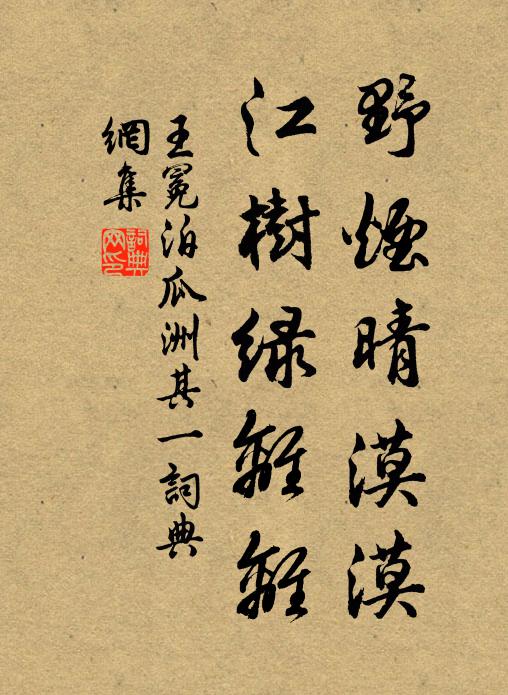 野煙晴漠漠
江樹緑離離
王冕泊瓜洲其一詞典
網集
詞典
网印